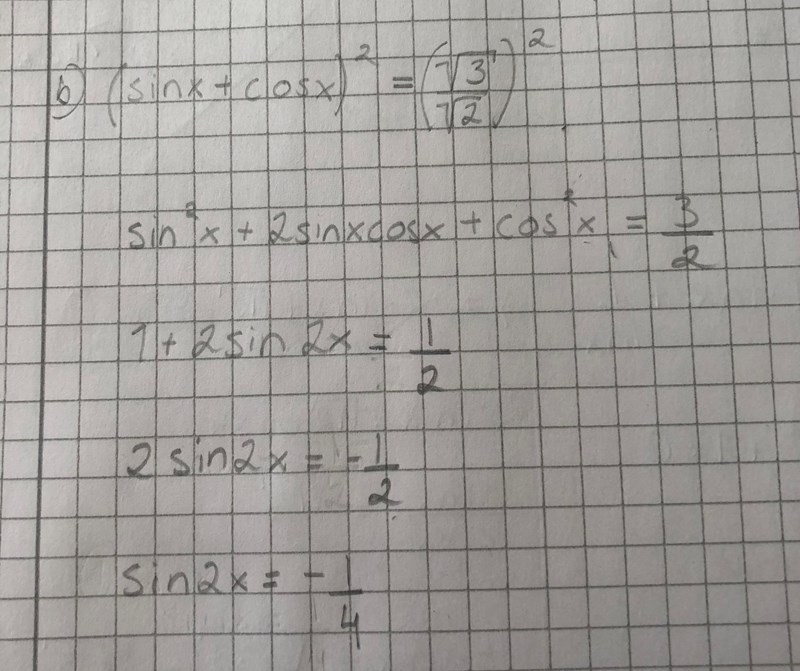 b) (sinx + cosx)² = (√3/√2)²
sin²x + 2sinxcosx + cos²x = 3/2
1 + 2sin2x = 1/2
2sin2x = -1/2
sin2x = -1/4